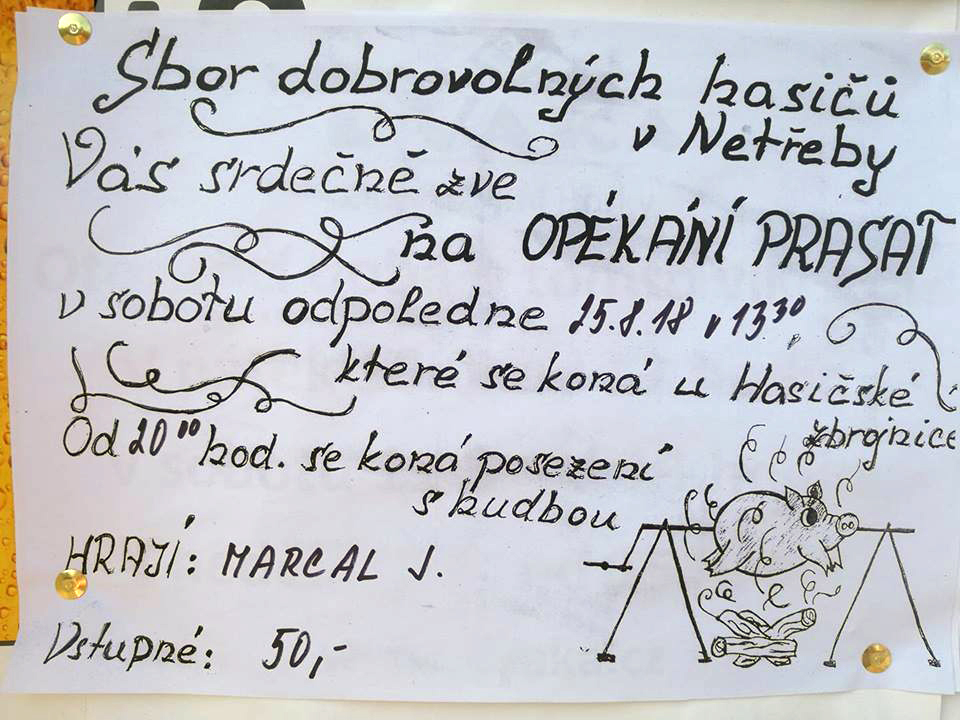 Sbor dobrovolných hasičů
v Netřeby
Vás srdečně zve
na OPÉKÁNÍ PRASAT
v sobotu odpoledne 25.8.18 v 13³⁰,
které se koná u Hasičské
zbrojnice
Od 20⁰⁰ hod. se koná posezení
s hudbou
HRAJÍ: MARCAL J.
Vstupné: 50,-